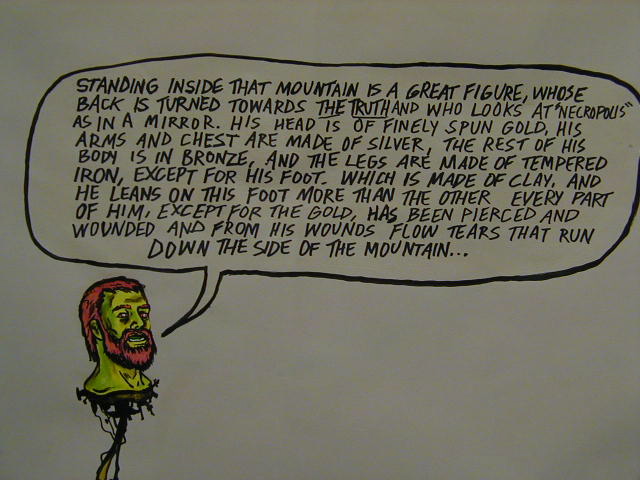 STANDING INSIDE THAT MOUNTAIN IS A GREAT FIGURE, WHOSE
BACK IS TURNED TOWARDS THE TRUTH AND WHO LOOKS AT "NECROPOLIS"
AS IN A MIRROR. HIS HEAD IS OF FINELY SPUN GOLD, HIS
ARMS AND CHEST ARE MADE OF SILVER, THE REST OF HIS
BODY IS IN BRONZE, AND THE LEGS ARE MADE OF TEMPERED
IRON, EXCEPT FOR HIS FOOT. WHICH IS MADE OF CLAY, AND
HE LEANS ON THIS FOOT MORE THAN THE OTHER EVERY PART
OF HIM, EXCEPT FOR THE GOLD, HAS BEEN PIERCED AND
WOUNDED AND FROM HIS WOUNDS FLOW TEARS THAT RUN
DOWN THE SIDE OF THE MOUNTAIN...